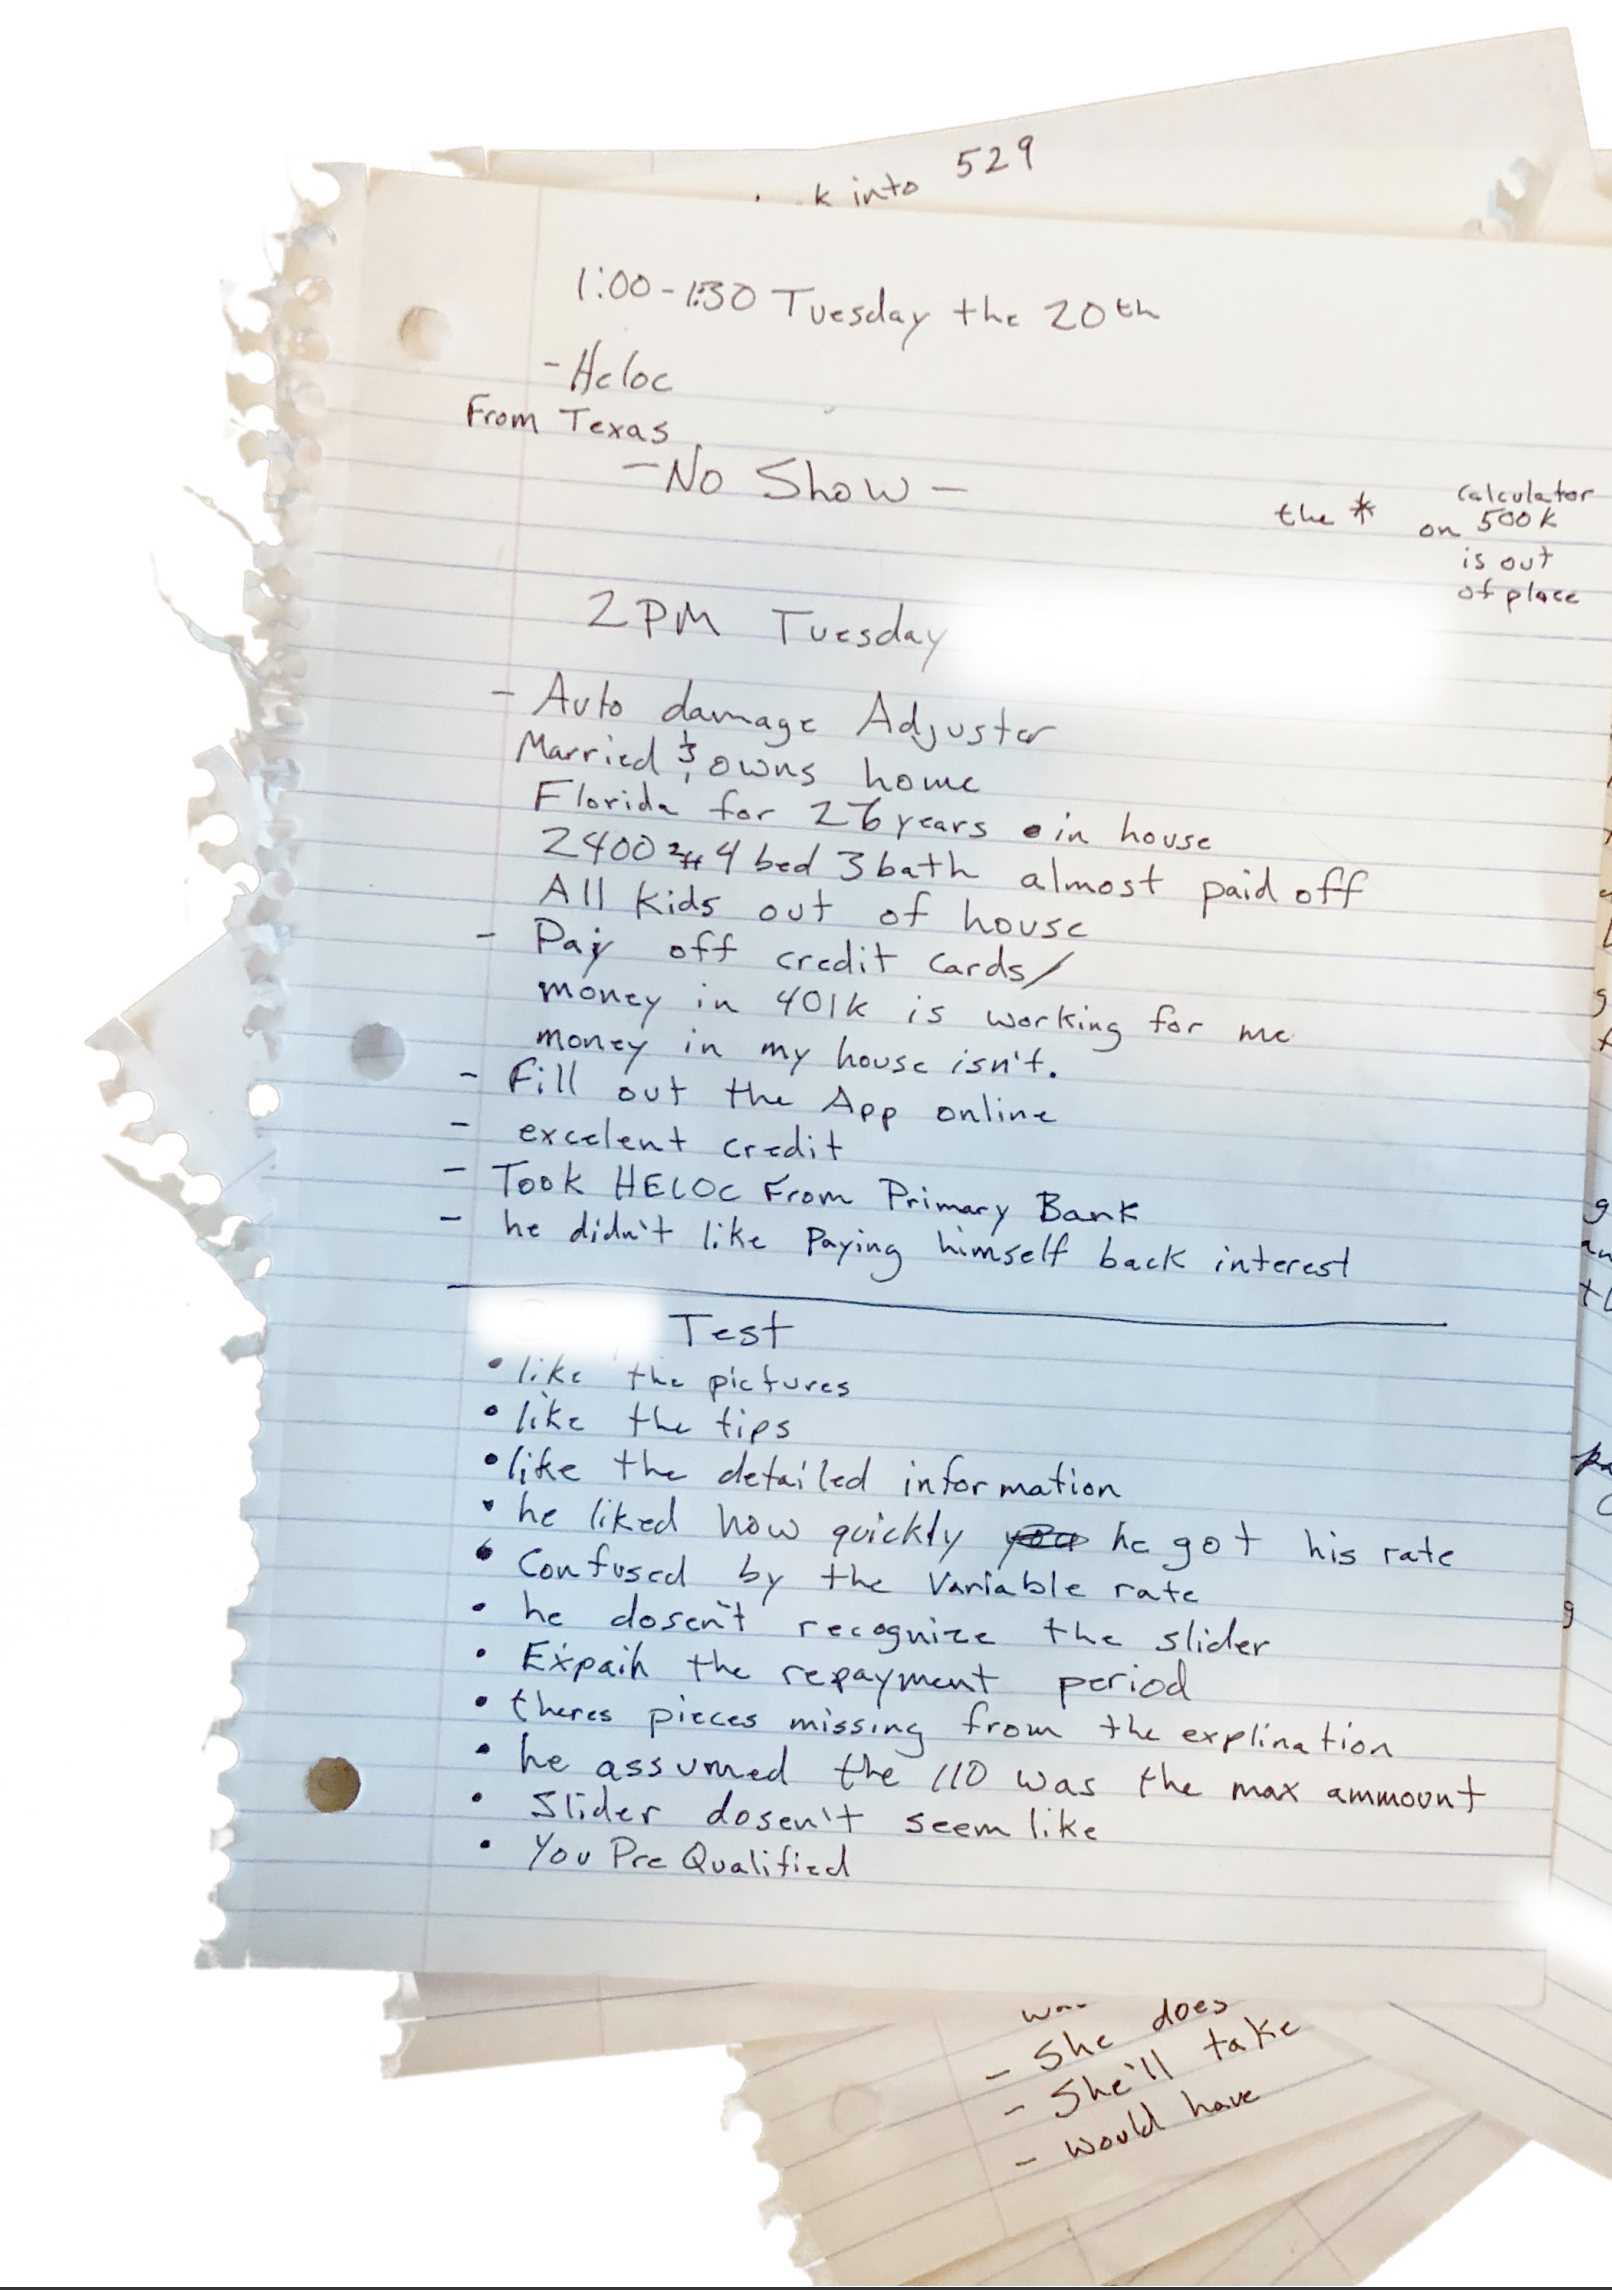 529
k into
1:00-1:30 Tuesday the 20th
- Heloc
From Texas
- No Show -
the * calculator
on 500k
is out
of place
2PM Tuesday
- Auto damage Adjuster
Married & owns home
Florida for 26 years in house
2400 2ft 4 bed 3 bath almost paid off
All kids out of house
- Pay off credit cards/
money in 401k is working for me
money in my house isn't.
- Fill out the App online
- excelent credit
- Took HELOC From Primary Bank
- he didn't like Paying himself back interest
Test
• like the pictures
• like the tips
• like the detailed information
• he liked how quickly he got his rate
• Confused by the Variable rate
• he dosen't recognize the slider
• Expain the repayment period
• theres pieces missing from the explination
• he assumed the 110 was the max ammount
• Slider dosen't seem like
• You Pre Qualified
- She does
- She'll take
- would have